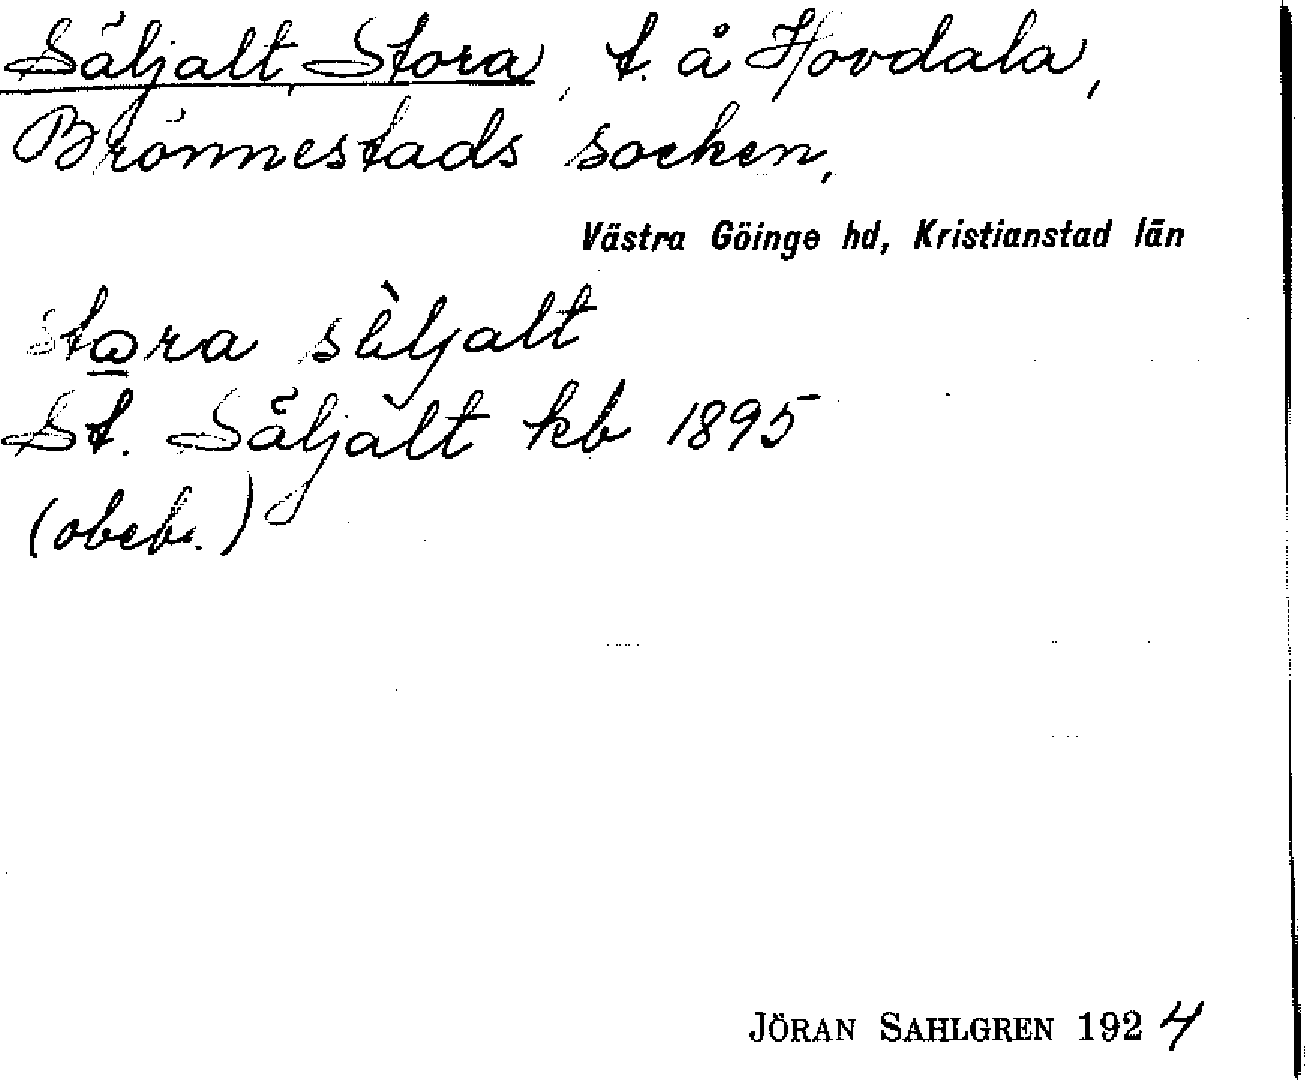 Säljalt, Stora, t. å Hovdala,
Brönnestads socken,
Västra Göinge hd, Kristianstad län
stora säljalt
St. Säljalt kb 1895
(obeb.)
JÖRAN SAHLGREN 1924